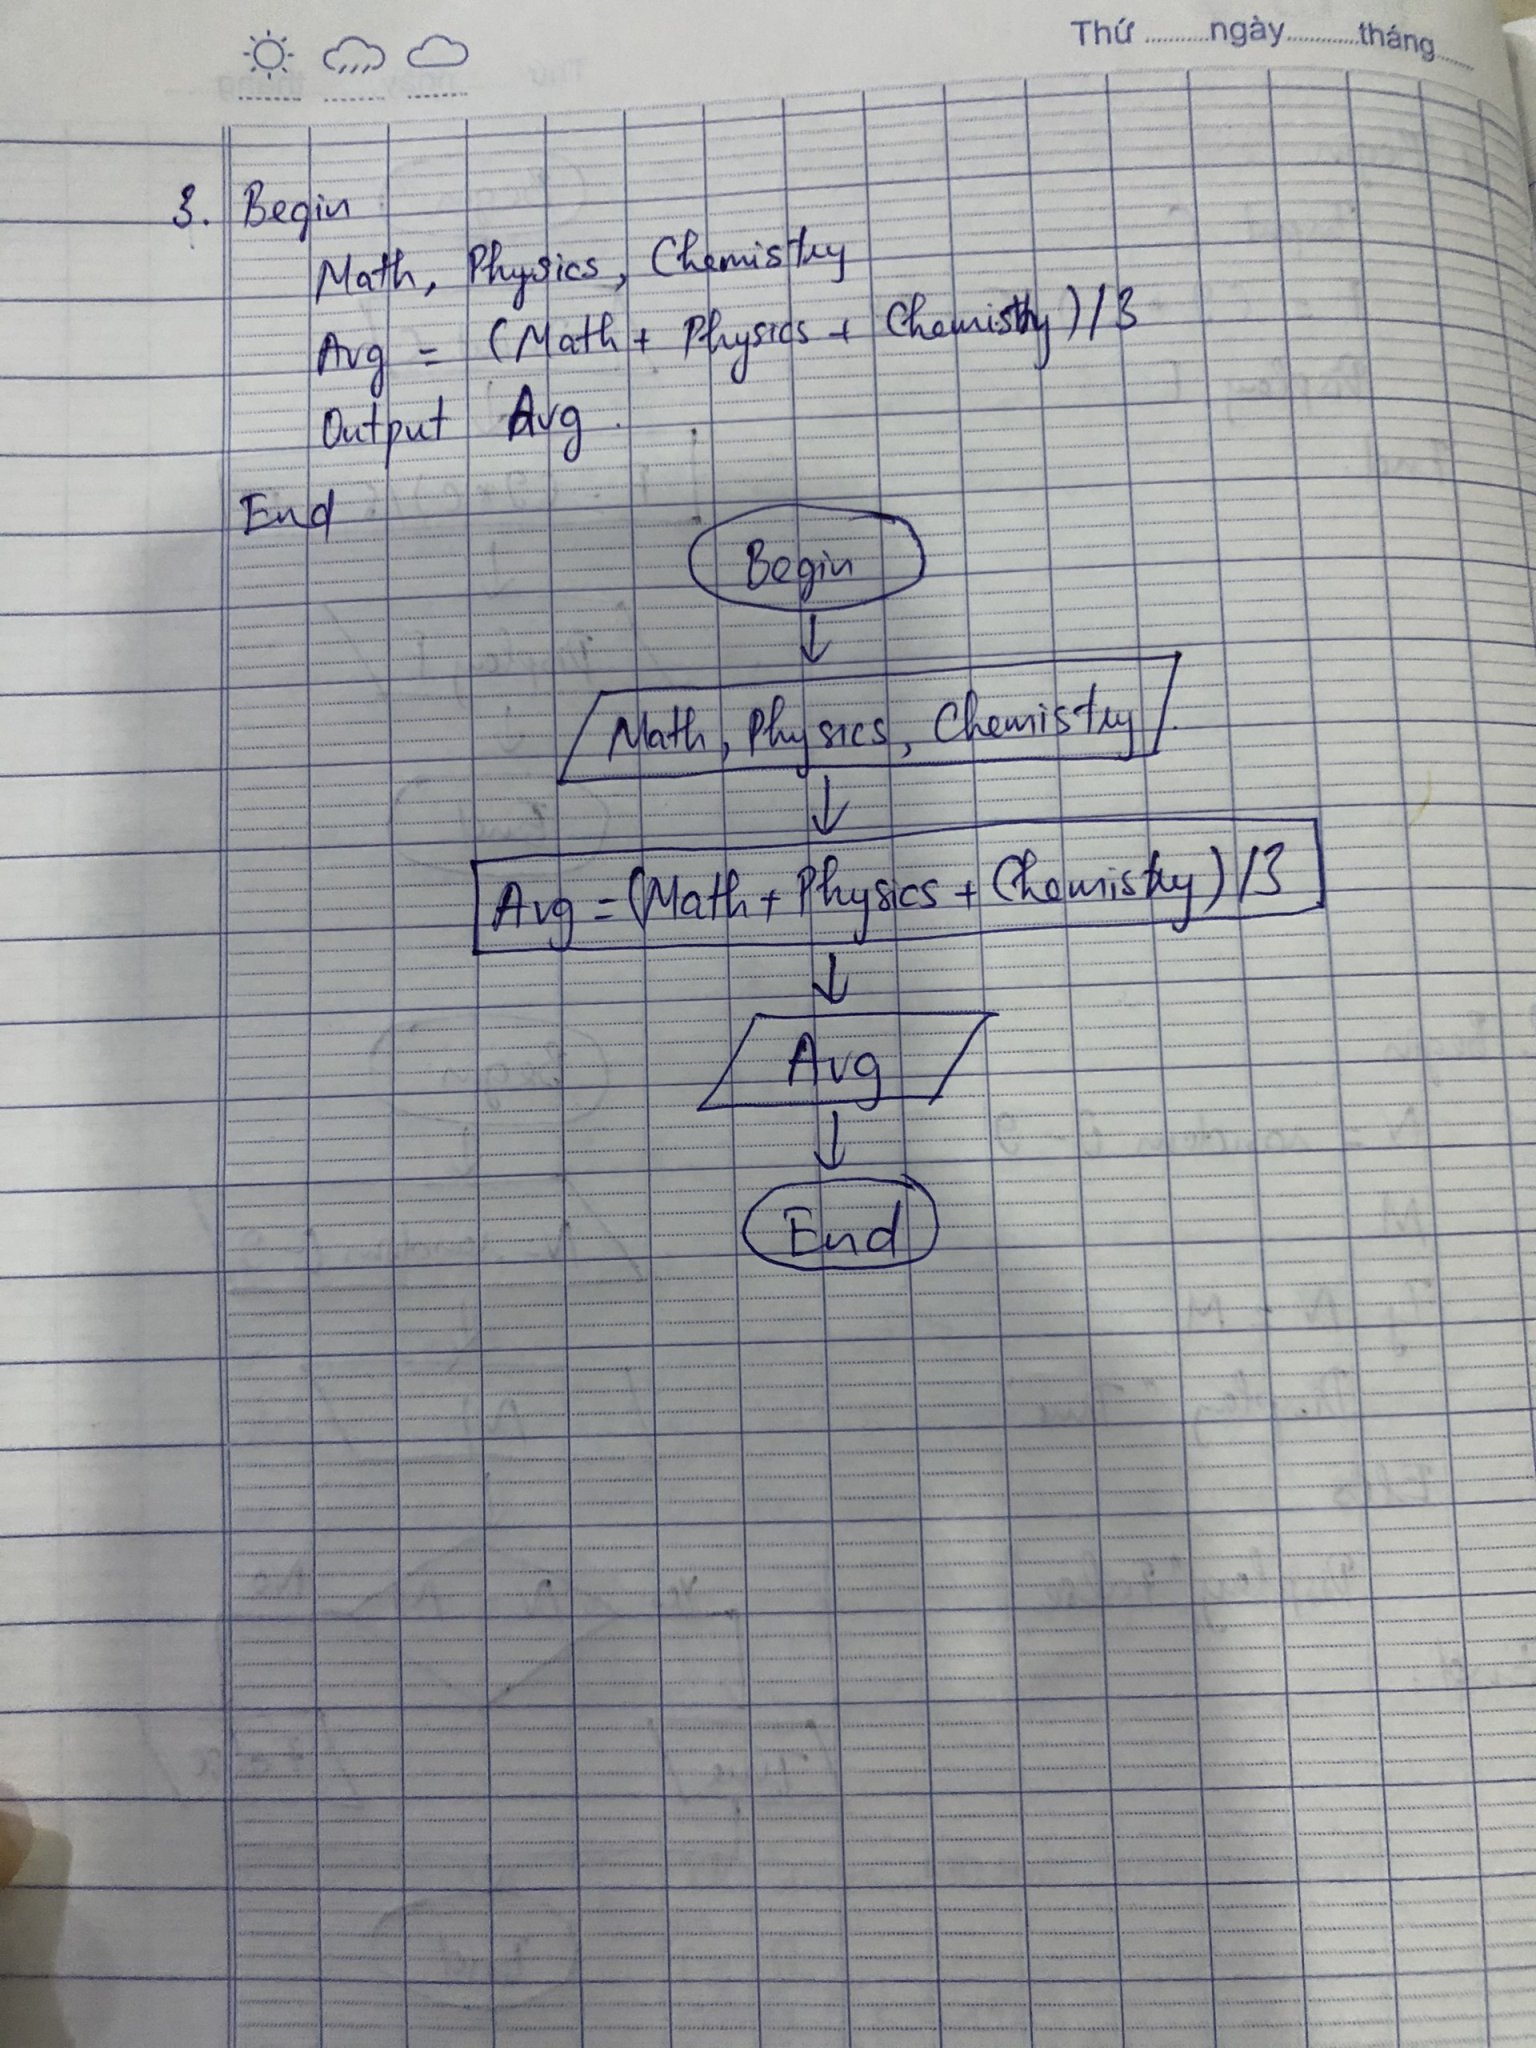 Thứ ..........ngày...........tháng......
3. Begin
Math, Physics, Chemistry
Avg = (Math + Physics + Chemistry) / 3
Output Avg.
End
Begin
Math, Physics, Chemistry
Avg = (Math + Physics + Chemistry) / 3
Avg
End